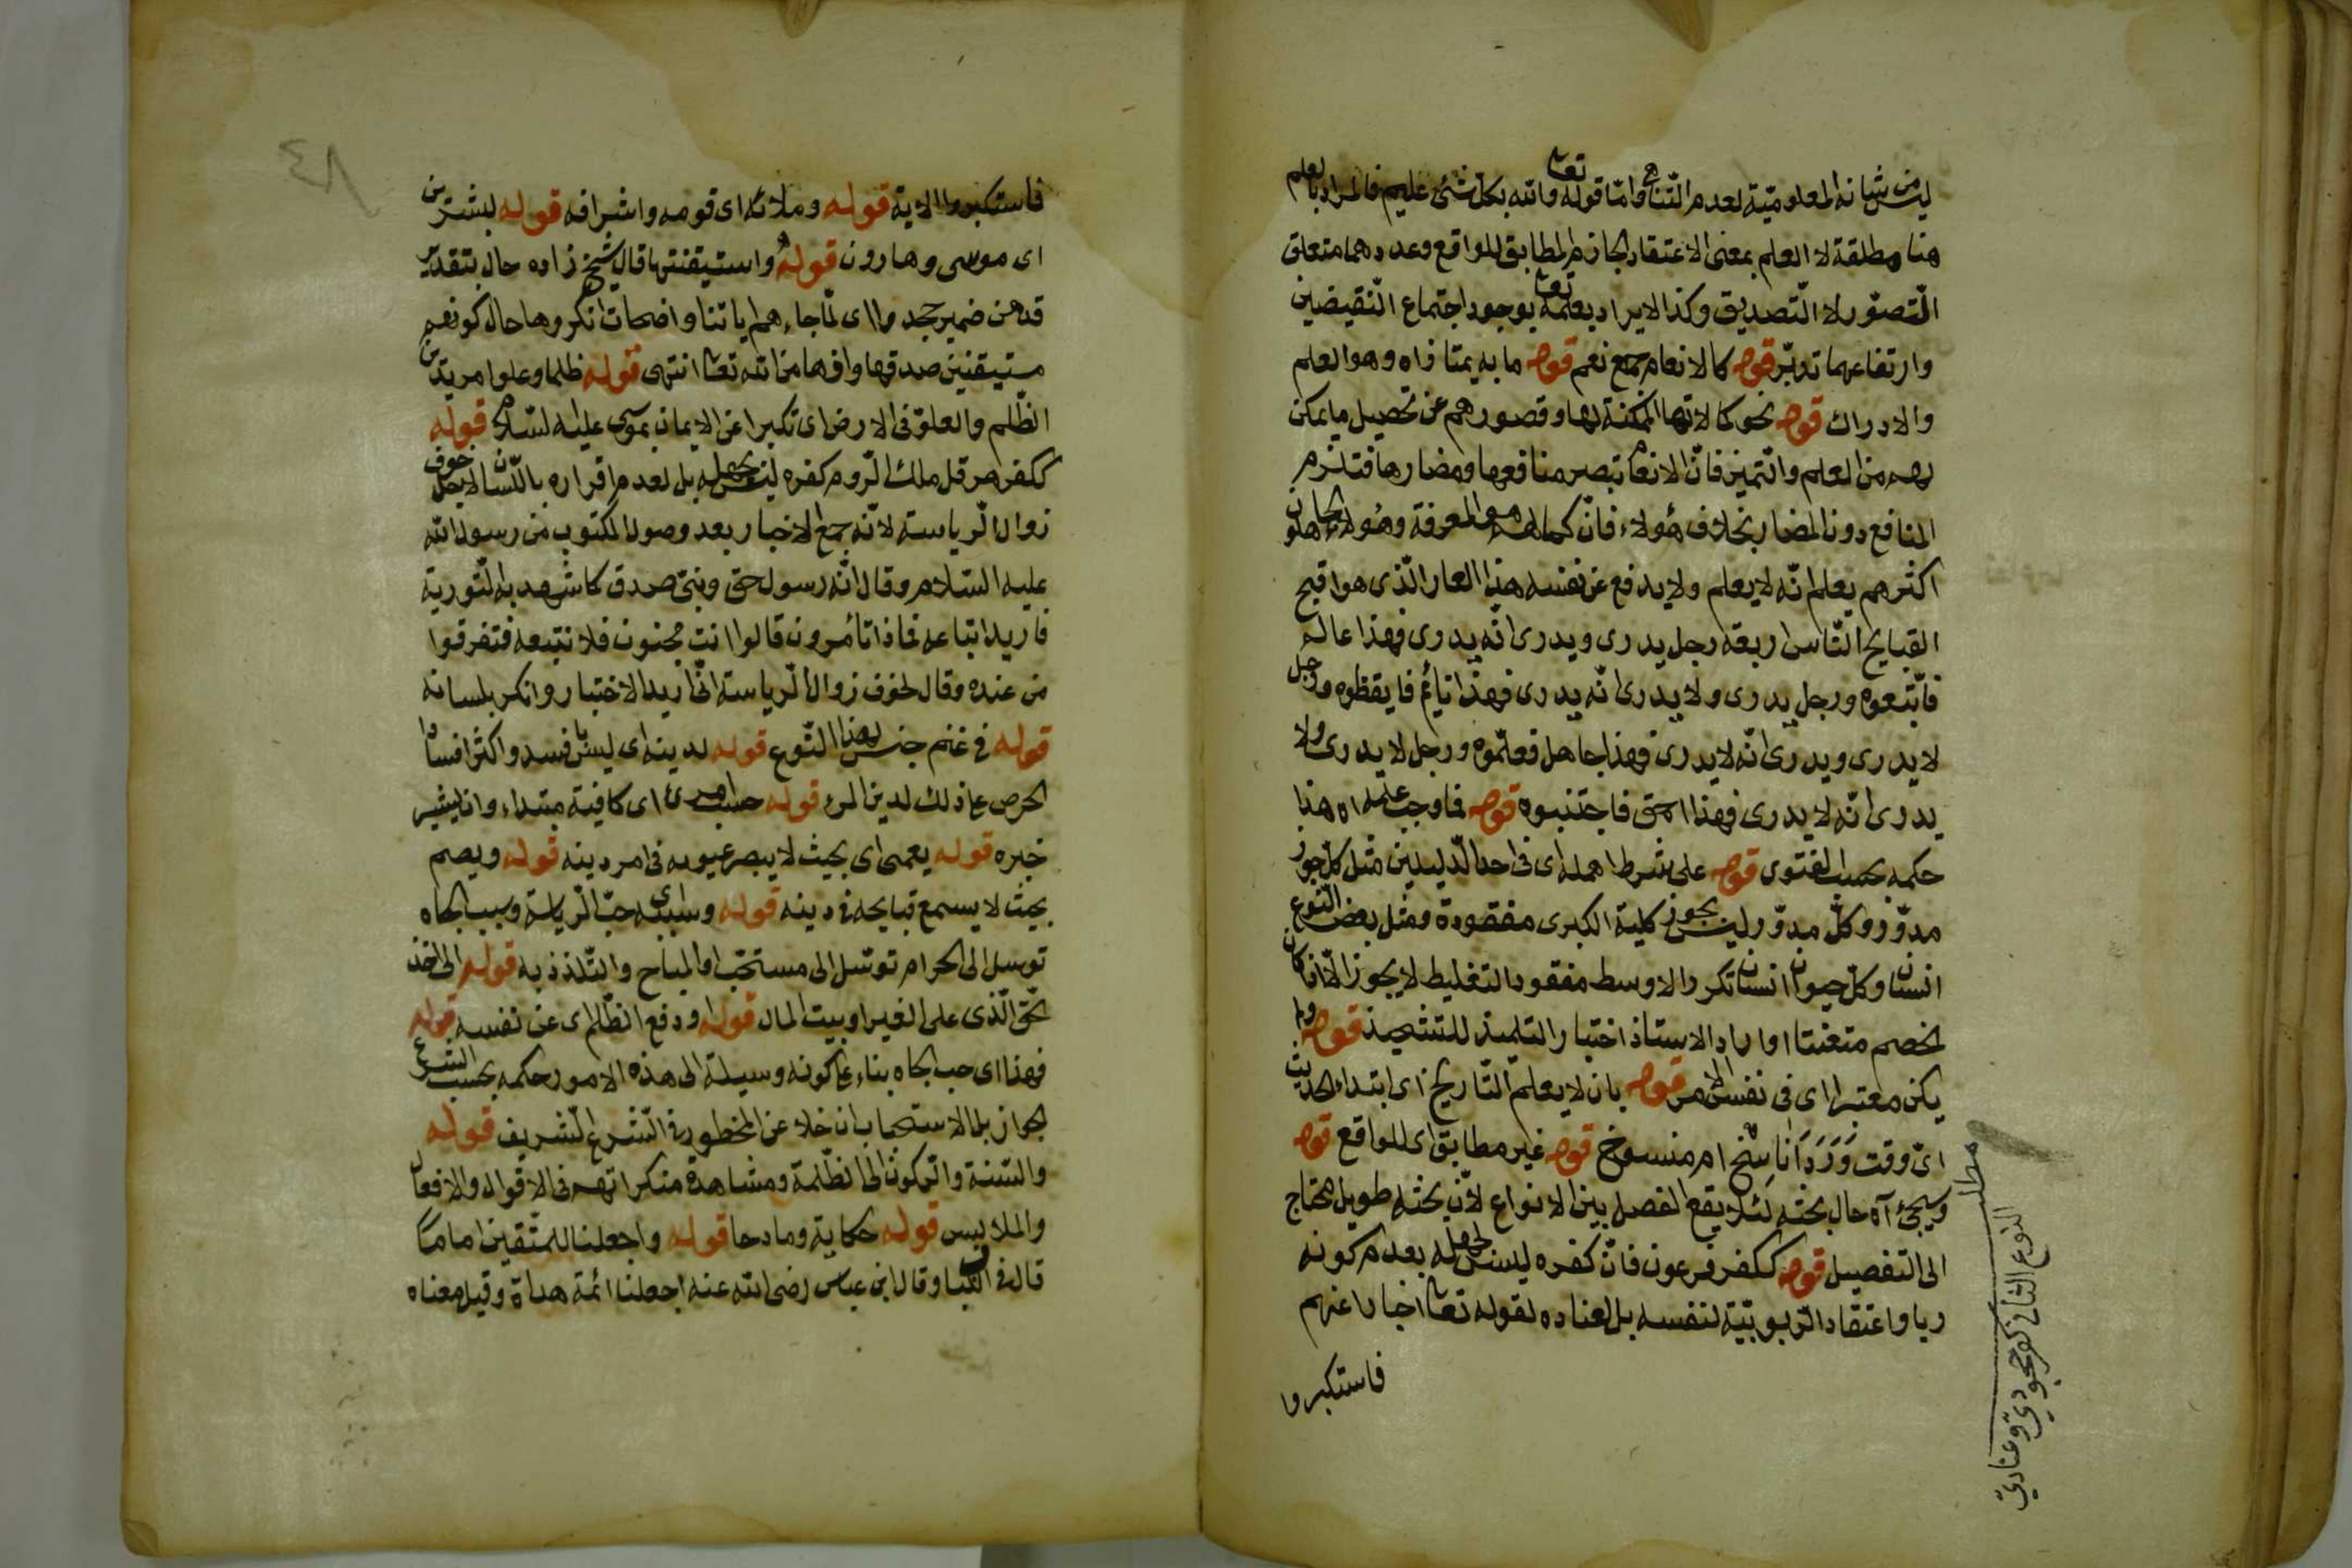 ليس من شانه المعلومية لعدم التناهى واما قوله تعا والله بكل شئ عليم فالمراد بالعلم
هنا مطلقة لا العلم بمعنى الاعتقاد الجازم المطابق للواقع وعدد هما متعلق
التصوّر لا التّصديق وكذا الايراد بعلمه تعا بوجود اجتماع النّقيضين
وارتفاعهما تدبّر قوله كالانعام جمع نعم قوله ما به يمتازاه وهو العلم
والادراك قوله نحو كمالاتها الممكنة لها وقصورهم عن تحصيل ما يمكن
لهم من العلم والتميز فانّ الانعام تبصر منافعها ومضارها فتلزم
المنافع دون المضار بخلاف هؤلاء فانّ كمالهم هو المعرفة وهؤلاء الجاهلون
اكثرهم يعلم انّه لا يعلم ولا يدفع عن نفسه هذا العار الّذى هو اقبح
القبايح النّاس اربعة رجل يدرى ويدرى انّه يدرى فهذا عالم
فاتّبعوه ورجل يدرى ولا يدرى انّه يدرى فهذا نايم فايقظوه ورجل
لا يدرى ويدرى انّه لا يدرى فهذا جاهل فعلّموه ورجل لا يدرى ولا
يدرى انّه لا يدرى فهذا احمق فاجتنبوه قوله فما وجب علمه اه هذا
حكمه بحسب الفتوى قوله على شرط اهمله اى فى احد الدّليلين مثل كلّ جوز
مدوّر وكلّ مدوّر ليس بجوز كلية الكبرى مفقودة ومثل بعض النّوع
انسان وكلّ حيوان انسان تكرر الاوسط مفقود التغليط لا يجوز الّا اذا كان
الخصم متعنتا او اراد الاستاذ اختبار التلميذ للتشحيذ قوله ولم
يكن معتبرا اى فى نفس الامر قوله بان لا يعلم التّاريخ اى ابتداء الحديث
اىّ وقت وَرَدَ اَنَاسِخ ام منسوخ قوله غير مطابق اى للواقع قوله
وسيجئ آه حال بحثه لئلا يقع الفصل بين الانواع لانّ بحثه طويل محتاج
الى التفصيل قوله ككفر فرعون فانّ كفره ليس لجهله بعدم كونه
ربا واعتقاد الرّبوبيّة لنفسه بل لعناده لقوله تعا اخبارا عنهم
فاستكبروا
مطلب
النوع الثانى كفر جحودىّ وعنادىّ
٨٣
فاستكبروا الاية قوله وملائه اى قومه واشرافه قوله لبشرين
اى موسى وهارون قوله واستيقنتها قال شيخ زاده حال بتقدير
قد من ضمير جحدوا اى لمّا جاءهم اياتنا واضحات انكروها حال كونهم
مستيقنين صدقها وانها من الله تعا انتهى قوله ظلما وعلوا مريدين
الظّلم والعلوّ فى الارض اى تكبرا عن الايمان بموسى عليه السّلام قوله
ككفر هرقل ملك الرّوم كفره ليس بجهله بل لعدم اقراره باللّسان لاجل خوف
زوال الرياسة لانّه جمع الاخبار بعد وصول المكتوب من رسول الله
عليه السّلام وقال انّه رسول حق ونبىّ صدق كما شهد به التّورية
فاريد اتباعه فماذا تأمرون قالوا انت مجنون فلا نتبعه فتفرقوا
من عنده وقال لخوف زوال الرّياسة انّما اريد الاختبار وانكر بلسانه
قوله فى غنم جنس لهذا النّوع قوله لدينه اى ليس بافسد واكثر افسادا
الحرص على ذلك لدين المرء قوله حسب امرئ اى كافية مبتداء وان يشير
خبره قوله يعمى اى بحيث لا يبصر عيوبه فى امر دينه قوله ويصم
بحيث لا يسمع قبايحه فى دينه قوله وسببه اى حبّ الرّياسة وسبب الجاه
توسل الى الحرام توسّل الى مستحبّ او المباح والتّلذذ به قوله الى اخذ
الحقّ الّذى على الغير او بيت المال قوله ودفع الظّلم اى عن نفسه قوله
فهذا اى حب الجاه بناء على كونه وسيلة الى هذه الامور حكمه بحسب الشرع
الجواز بل الاستحباب ان خلا عن المخطور فى الشّرع الشّريف قوله
والسّنة والرّكون الى الظّلمة ومشاهدة منكراتهم فى الاقوال والافعال
والملابس قوله حكاية ومادحا قوله واجعلنا للمتّقين اماما
قال فى اللّباب وقال ابن عباس رضى الله عنه اجعلنا ائمة هداة وقيل معناه